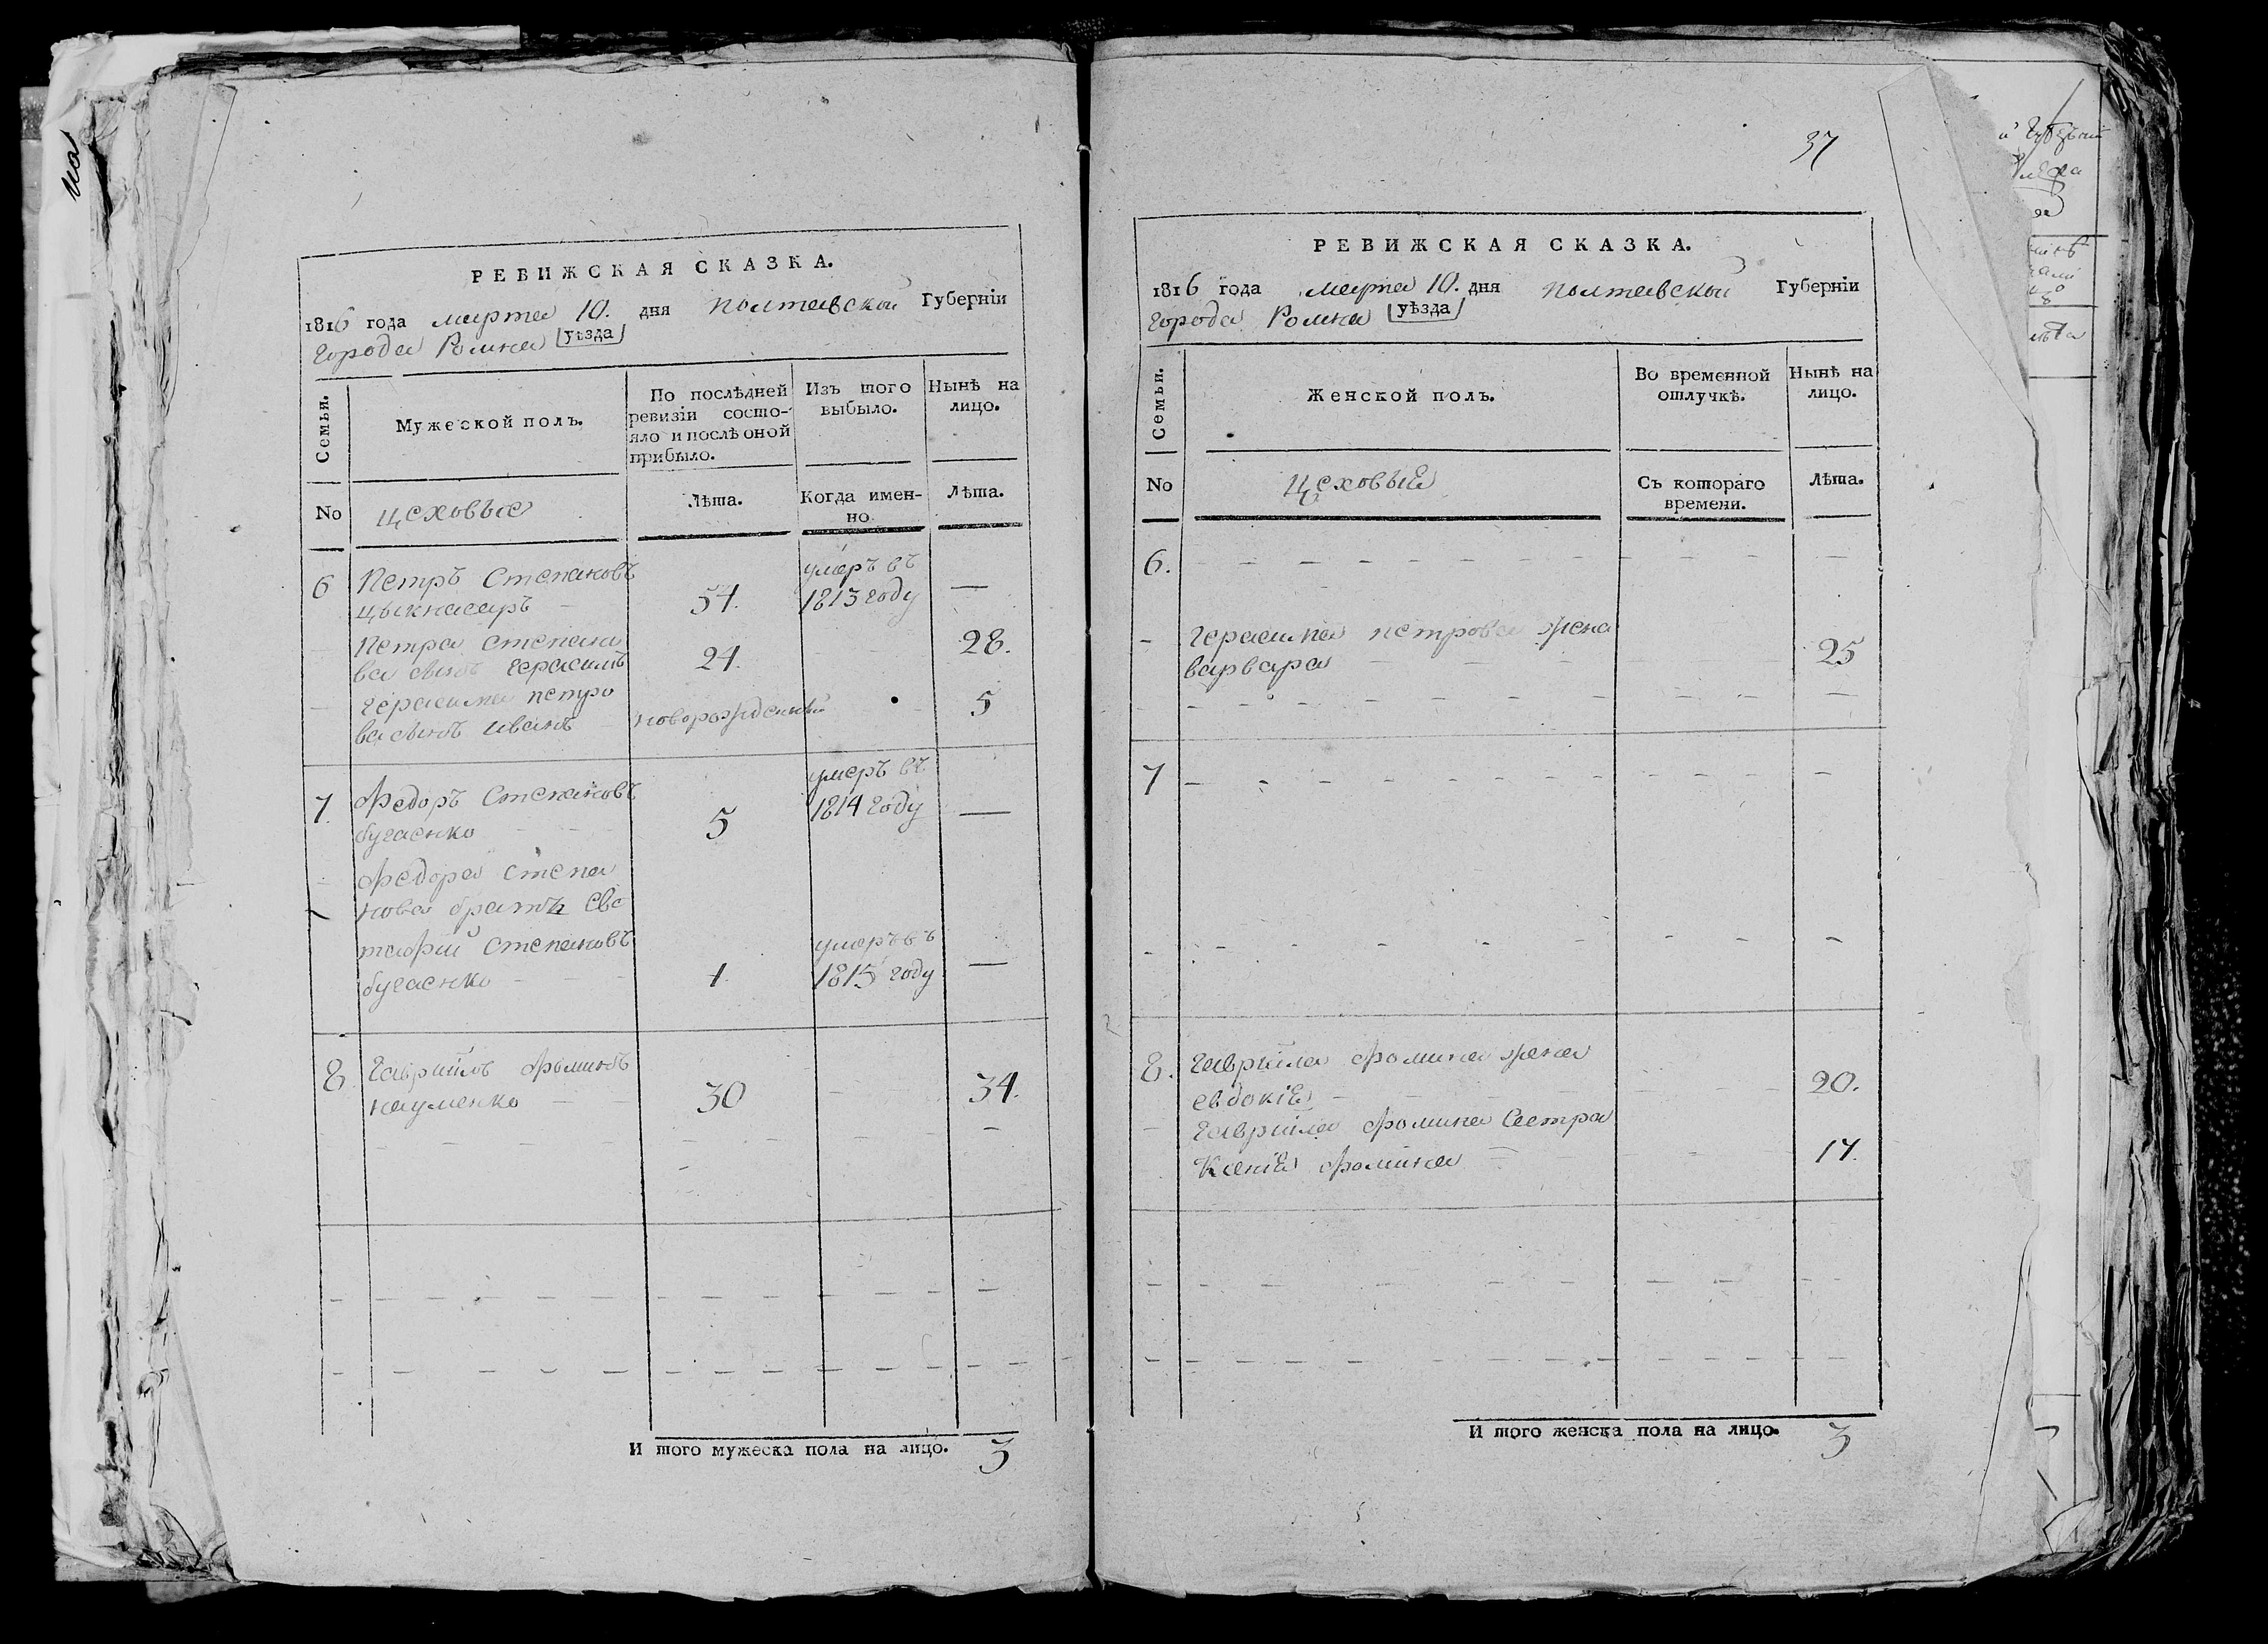 на
РЕВИЖСКАЯ СКАЗКА.
1816 года марта 10. дня Полтавской Губерніи
города Ромна уѣзда
Семьи.
Мужеской полъ.
По послѣдней
ревизіи состо-
яло и послѣ оной
прибыло.
Изъ того
выбыло.
Нынѣ на
лицо.
No
цеховые
Лѣта.
Когда имен-
но.
Лѣта.
6 Петръ Степановъ
умеръ въ
54. 1813 году —
Петра Степано
28.
ва сынъ герасимъ
24.
герасима петро
ва сынъ иванъ
новорожденный
5
7. Федоръ Степановъ
умеръ въ
1814 году —
бугаенко
5
Федора Степа
нова братъ Евс
тафий Степановъ
умеръ въ
бугаенко
1
1815 году —
8. гаврийлъ Фоминъ
науменко
30
34.
И того мужеска пола на лицо. 3
37
РЕВИЖСКАЯ СКАЗКА.
1816 года марта 10. дня полтавской Губерніи
города Ромна уѣзда
Семьи.
Женской полъ.
Во временной
отлучкѣ.
Нынѣ на
лицо.
No
цеховые
Съ котораго
времени.
Лѣта.
6.
герасима петрова жена
варвара
25
7
8. гаврийла фомина жена
евдокіе
20.
гаврийла фомина Сестра
Ксеніе фомина
17.
И того женска пола на лицо. 3